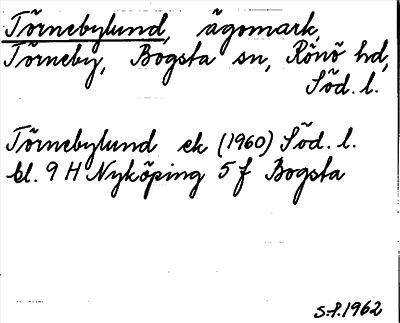 Törnebylund, ägomark,
Törneby, Bogsta sn, Rönö hd,
Söd. l.
Törnebylund ek (1960) Söd. l.
bl. 9 H Nyköping 5 f Bogsta
S.P. 1962